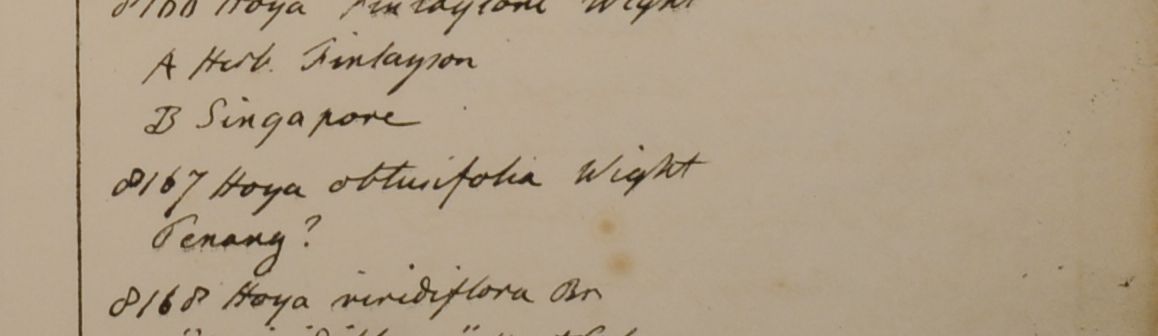 8166 Hoya Finlaysoni Wight
A Herb. Finlayson
B Singapore
8167 Hoya obtusifolia Wight
Penang?
8168 Hoya viridiflora Br